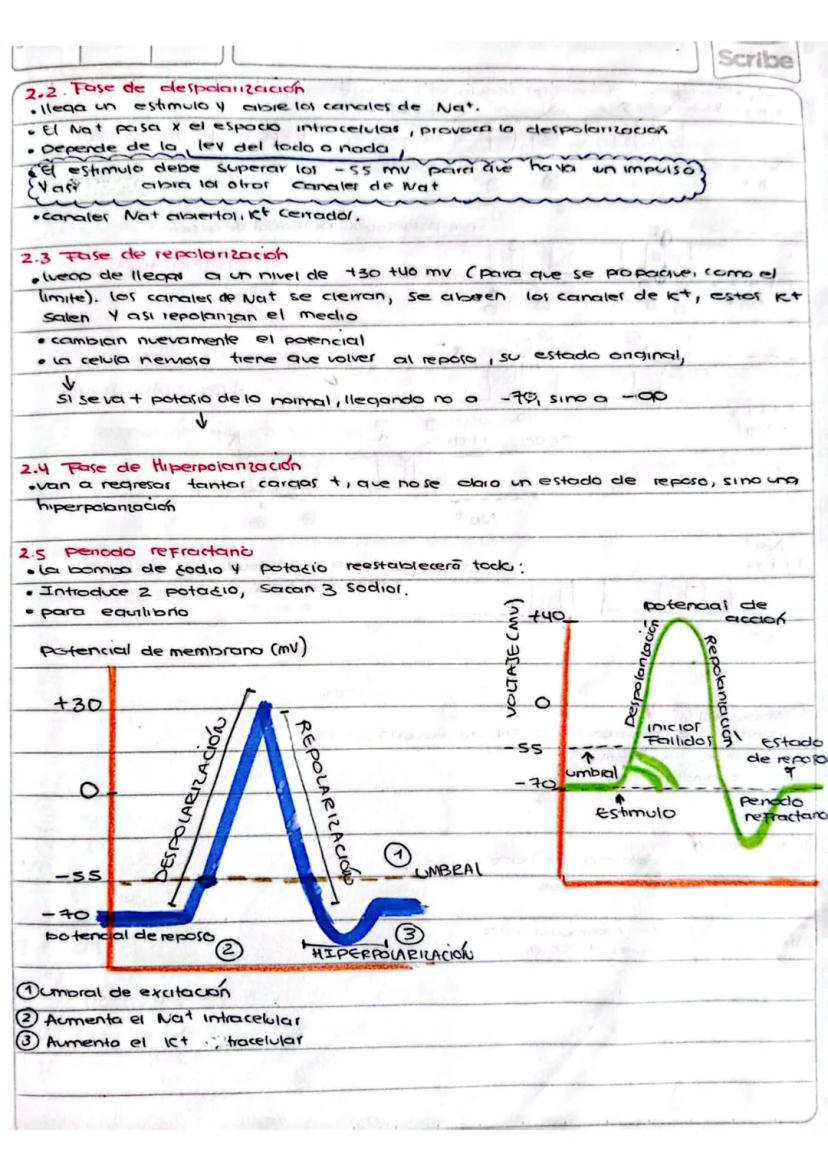 Scribe
2.2. Fase de despolarización
• llega un estimulo y abre los canales de Na+.
• El Na+ pasa x el espacio introcelular, provoca la despolarización
• Depende de la ley del todo o nada
• El estimulo debe superar los -55 mv para que haya un impulso
y así abra los otros canales de Na+
• canales Na+ abiertos, K+ cerrados.
2.3 Fase de repolarización
• luego de llegar a un nivel de +30 +40 mv (para que se propague, como el
limite). los canales de Na+ se cierran, se abren los canales de K+, estos K+
salen y asi repolarizan el medio
• cambian nuevamente el potencial
• La celula nerviosa tiene que volver al reposo, su estado original,
↓
si se va + potasio de lo normal, llegando no a -70, sino a -90
↓
2.4 Fase de Hiperpolarización
• van a regresar tantas cargas +, que no se dara un estado de reposo, sino una
hiperpolarización
2.5 Periodo refractario
• La bomba de sodio y potasio reestablecerá todo:
• Introduce 2 potasio, sacan 3 sodios.
• para equilibrio
Potencial de membrana (mv)
+30
0
-55
-70
DESPOLARIZACIÓN
REPOLARIZACIÓN
① UMBRAL
potencial de reposo
②
③
HIPERPOLARIZACIÓN
VOLTAJE (mv)
+40
0
-55
-70
potencial de
acción
Despolarización
Repolarización
inicios
Fallidos
umbral
Estimulo
Estado
de reposo
Periodo
refractario
① umbral de excitación
② Aumenta el Na+ intracelular
③ Aumenta el K+ tracelular